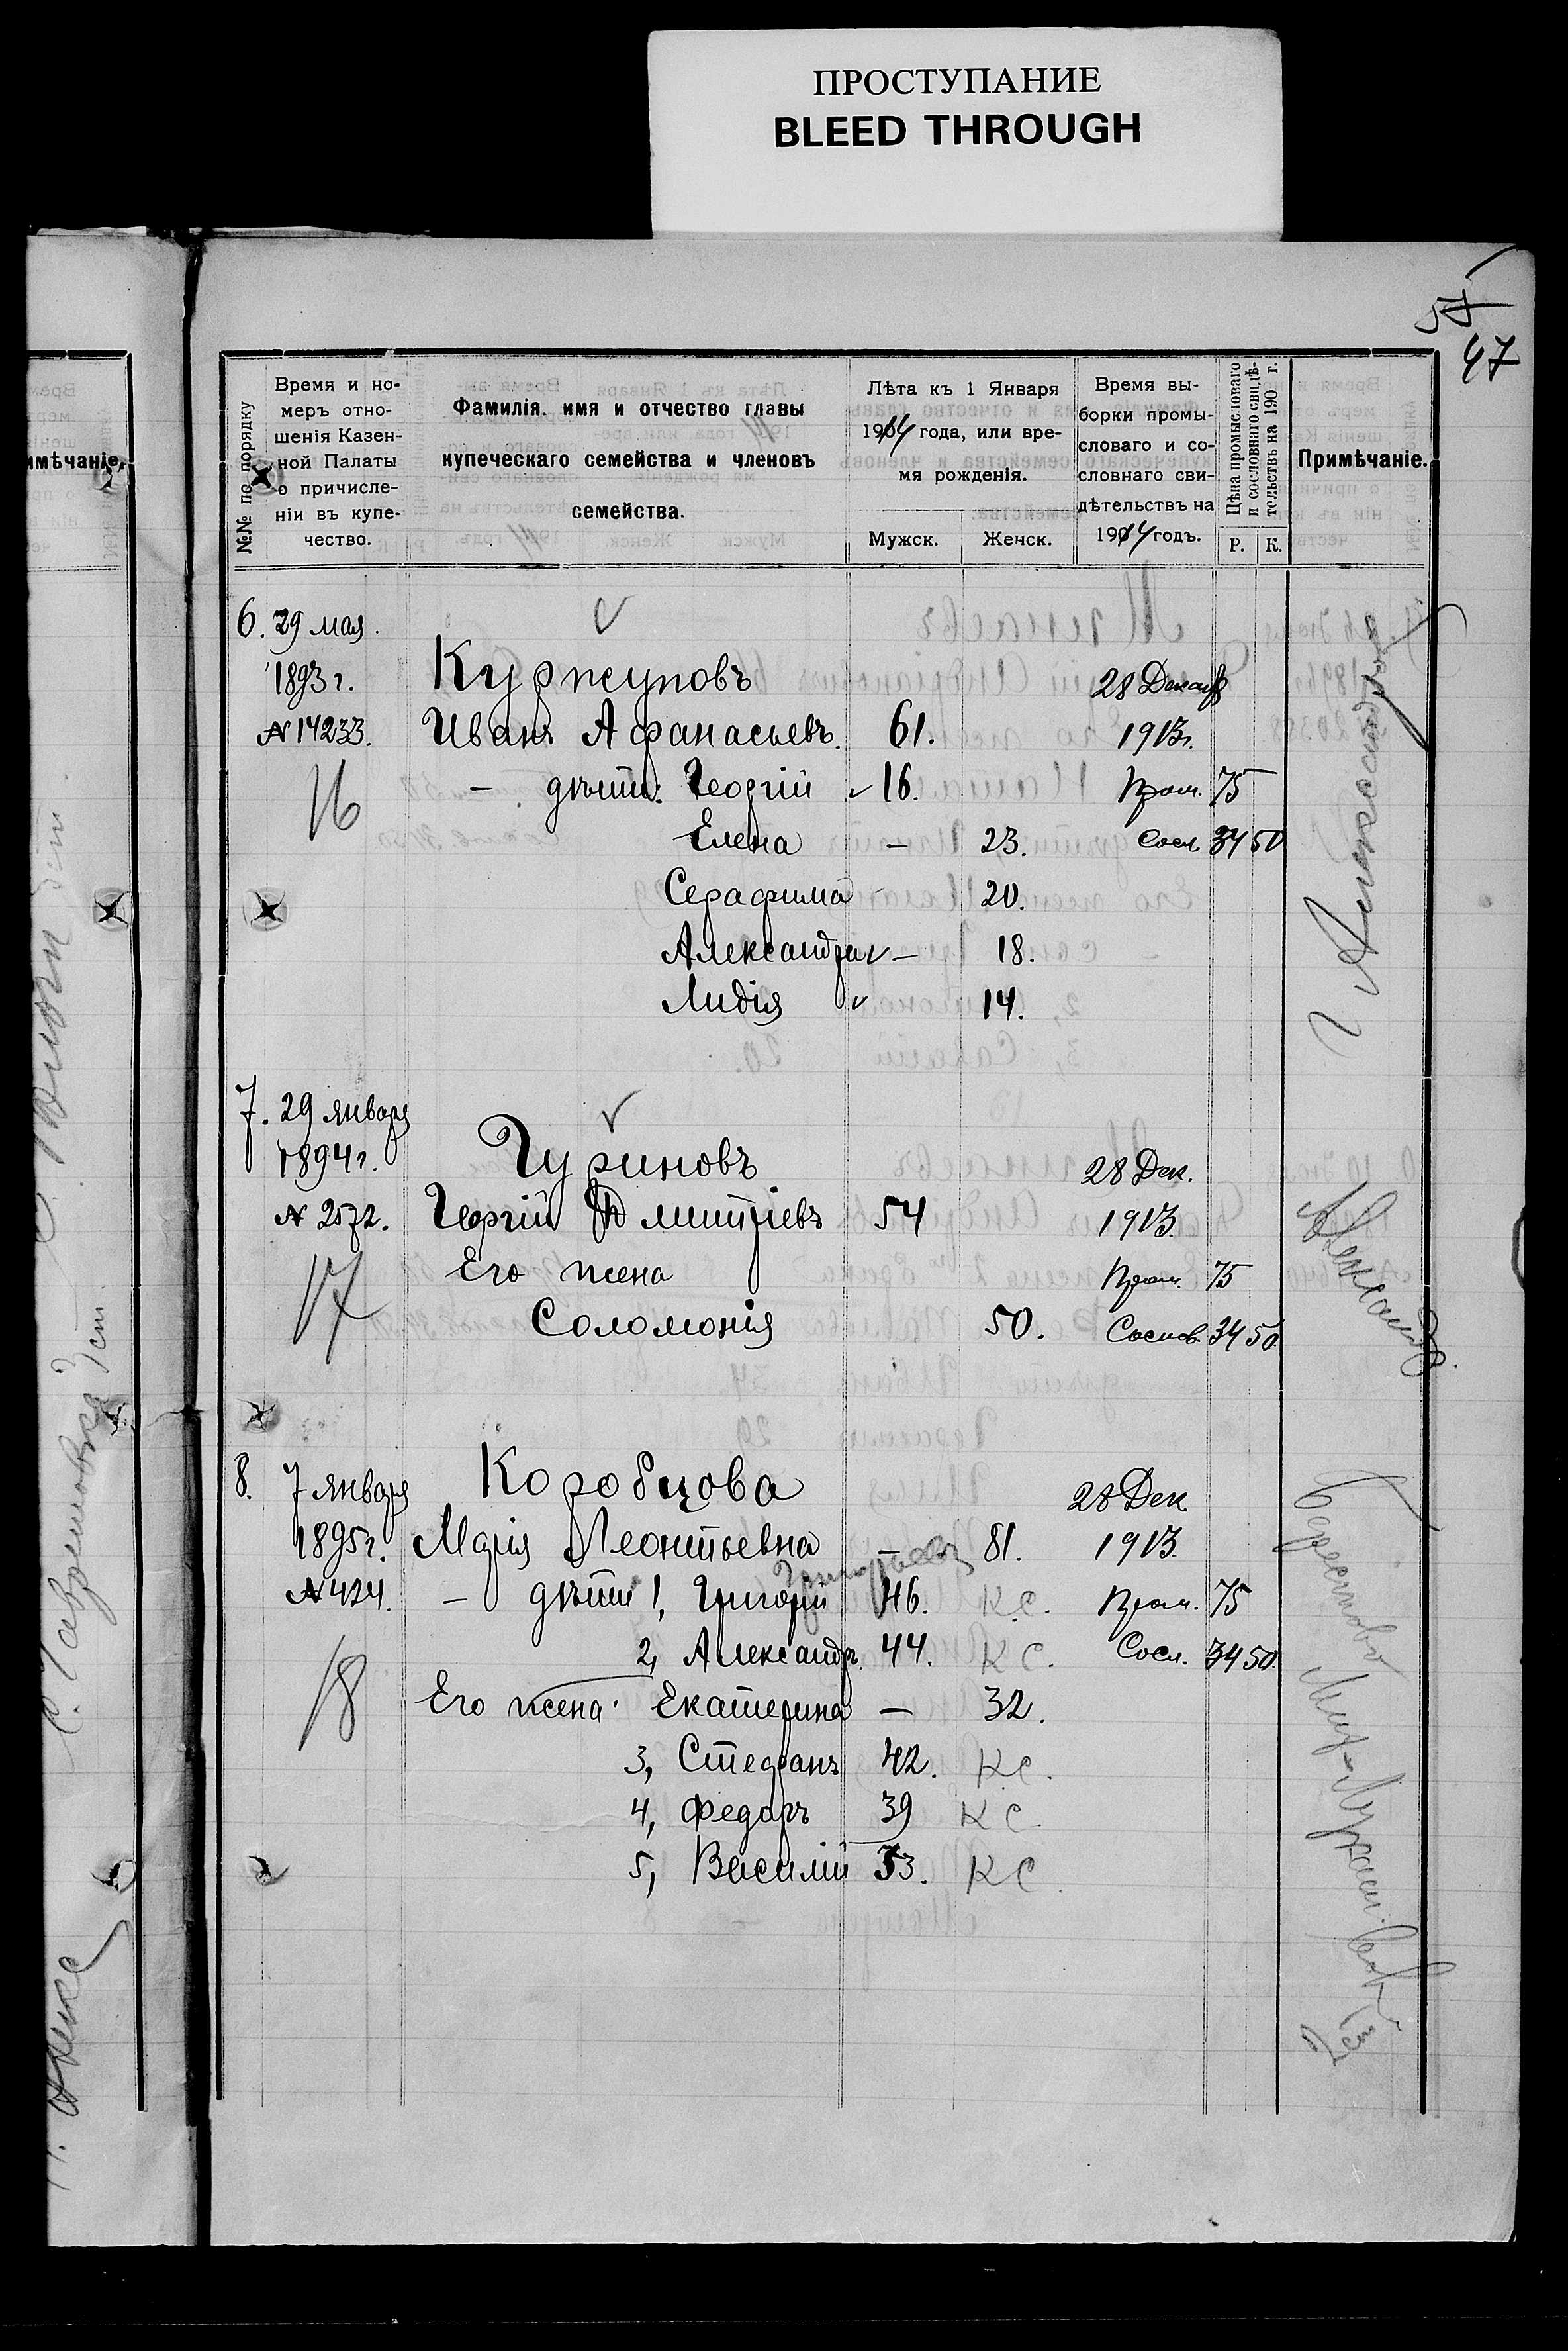 ПРОСТУПАНИЕ
BLEED THROUGH
57
47
имѣчаніе.
№№ по порядку
Время и но-
меръ отно-
шенія Казен-
ной Палаты
о причисле-
ніи въ купе-
чество.
Фамилія. имя и отчество главы
купеческаго семейства и членовъ
семейства.
Лѣта къ 1 Января
1914 года, или вре-
мя рожденія.
Мужск. Женск.
Время вы-
борки промы-
словаго и со-
словнаго сви-
дѣтельствъ на
1914 годъ.
Цѣна промысловаго
и сословнаго свидѣ-
тельствъ на 190 г.
Р. К.
Примѣчаніе.
6. 29 мая
1893 г. Куржуповъ 28 Декаб
№ 14233. Иванъ Афанасьевъ. 61. 1913 г.
16 — дѣти: Георгій 16. Пром. 75
Елена — 23. Сосл 34 50
Серафима - 20.
Александра — 18.
Лидія 14.
7. 29 января
1894 г. Чуриновъ 28 Дек.
№ 2572. Георгій Дмитріевъ 54 1913.
17 Его жена Пром. 75
Соломонія 50. Сослов. 34 50
8. 7 января Коробцова 28 Дек
1895 г. Марія Леонтьевна — 81. 1913.
Григорьевъ
№ 424. — дѣти 1, Григорій 46. К.С. Пром. 75
2, Александръ. 44. К С. Сосл. 34 50.
18 Его жена Екатерина — 32.
3, Стефанъ 42. К.С.
4, Федоръ 39 К С.
5, Василій 33. К С